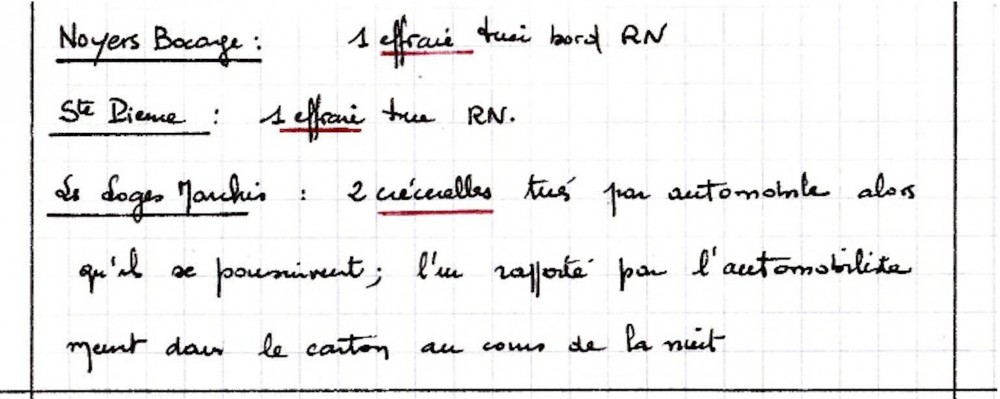 Noyers Bocage : 1 effraie tuée bord RN
Ste Pienne : 1 effraie tuée RN.
Les Loges Marchis : 2 crécerelles tués par automobile alors
qu'il se poursuivent ; l'un rapporté par l'automobiliste
meurt dans le carton au cours de la nuit